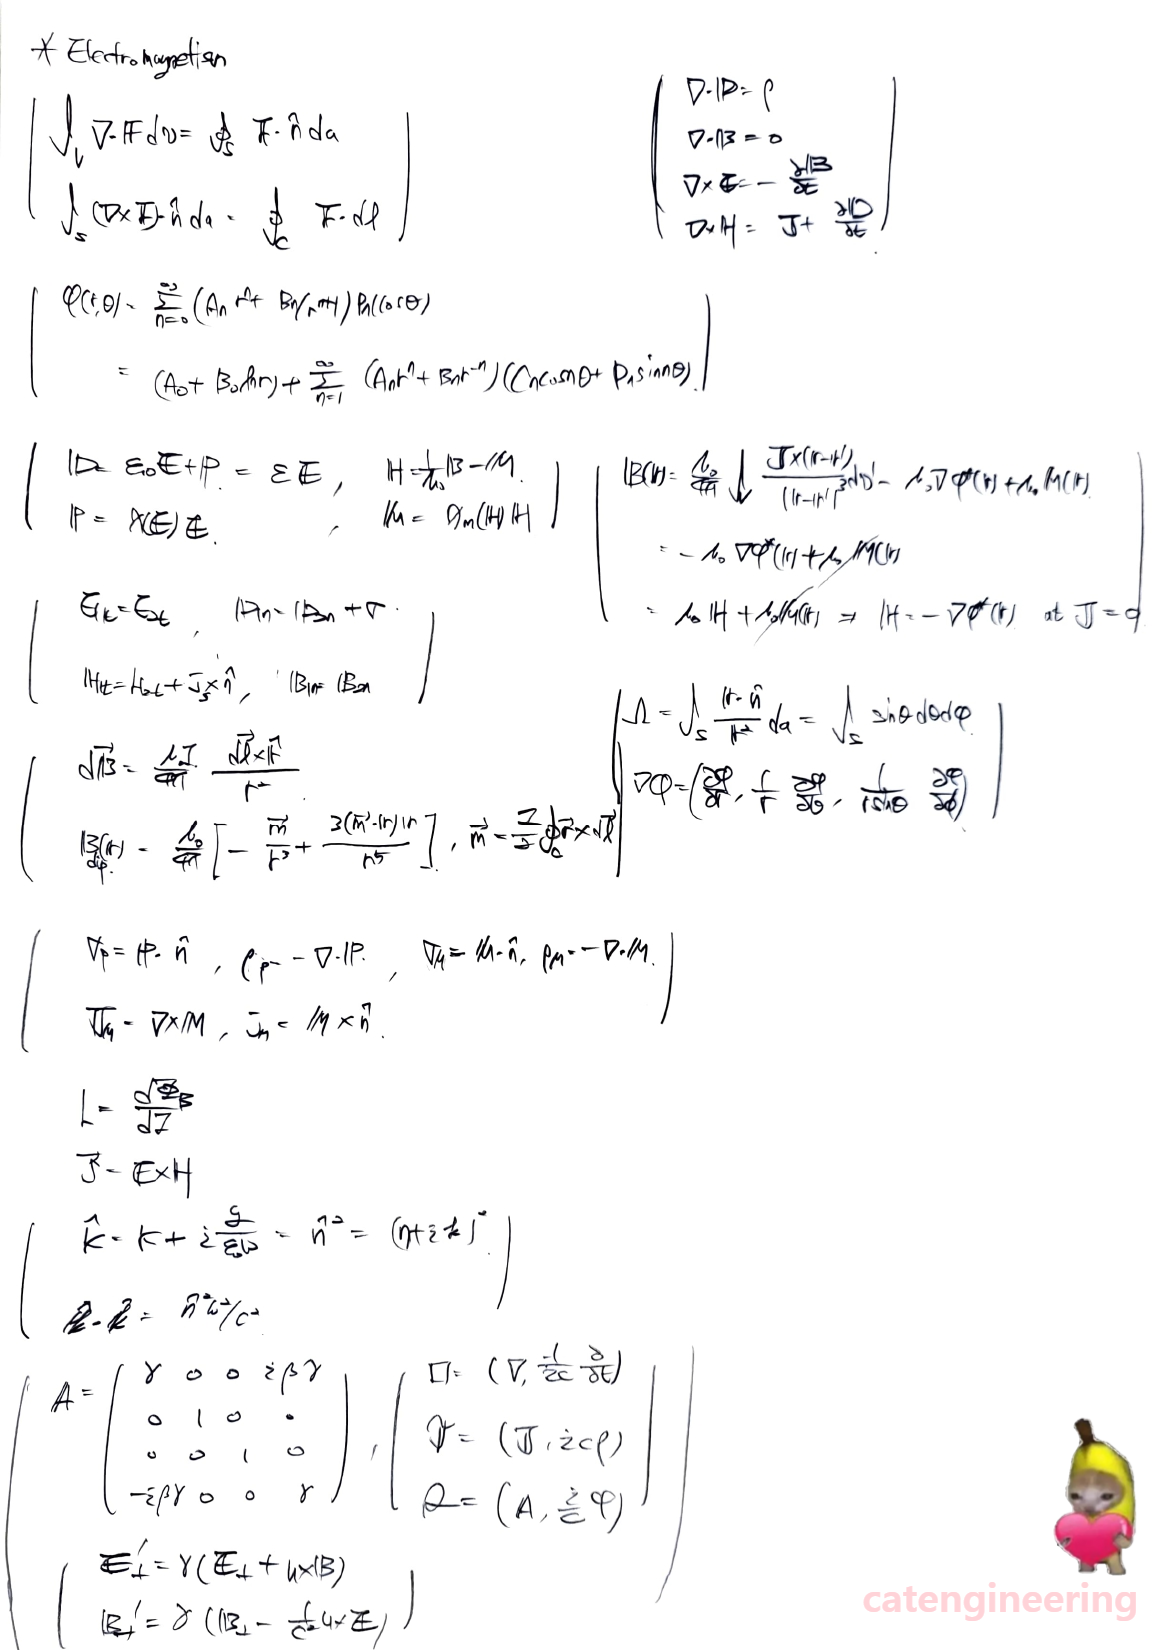 * Electromagnetism
∫_V ∇·𝔽 dv = ∮_S 𝔽·n̂ da
∫_S (∇×𝔽)·n̂ da = ∮_C 𝔽·dl
∇·𝔻 = ρ
∇·𝔹 = 0
∇×𝔼 = - ∂𝔹/∂t
∇×ℍ = 𝕁 + ∂𝔻/∂t
φ(r,θ) = Σ_{n=0}^∞ (An r^n + Bn/r^{n+1}) Pn(cosθ)
= (A0 + B0 ln r) + Σ_{n=1}^∞ (An r^n + Bn r^{-n})(Cn cos nθ + Dn sin nθ)
𝔻 = ε0 𝔼 + ℙ = ε 𝔼, ℍ = 1/μ0 𝔹 - 𝕄.
ℙ = χ(𝔼) 𝔼, 𝕄 = χm(ℍ) ℍ
𝔹(r) = μ0/4π ∫ 𝕁×(r-r')/|r-r'|^3 dv' - μ0∇φ*(r) + μ0 𝕄(r)
= - μ0 ∇φ*(r) + μ0 𝕄(r)
= μ0 ℍ + μ0 𝕄(r) ⇒ ℍ = - ∇φ*(r) at 𝕁 = 0
E1t = E2t, 𝔻1n = 𝔻2n + σ.
ℍ1t = H2t + Js × n̂, 𝔹1n = 𝔹2n
Ω = ∫_S r·n̂/r² da = ∫_S sinθ dθ dφ
∇φ = (∂φ/∂r, 1/r ∂φ/∂θ, 1/(r sinθ) ∂φ/∂ϕ)
d𝔹 = μ0I/4π dl⃗×r̂/r²
𝔹(r)_dip. = μ0/4π [ - m⃗/r³ + 3(m⃗·r)r/r⁵ ], m⃗ = I/2 ∮_C r⃗×dl⃗
σp = ℙ·n̂, ρp = -∇·ℙ. , σM = 𝕄·n̂, ρM = -∇·𝕄.
𝕁M = ∇×𝕄, jM = 𝕄×n̂.
L = dΦB/dI
S⃗ = 𝔼×H
K̂ = K + i g/ε0ω = n̂² = (n+ik)²
k̂·k̂ = n̂²ω²/c²
A = ( γ 0 0 iβγ
0 1 0 0
0 0 1 0
-iβγ 0 0 γ ),
□ = (∇, 1/ic ∂/∂t)
= (𝕁, icρ)
= (A, i/c φ)
𝔼⊥' = γ(𝔼⊥ + u×𝔹)
𝔹⊥' = γ(𝔹⊥ - 1/c² u×𝔼)
catengineering